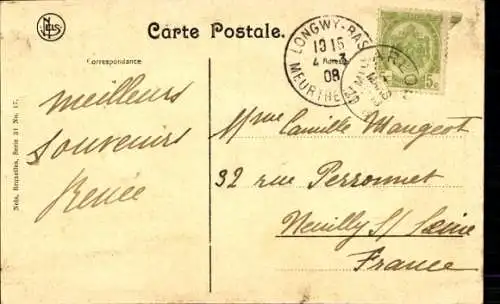 NELS
Carte Postale.
Correspondance
LONGWY-BAS
10 15
4
3
08
MEURTHE
ARLON
5c
Meilleurs
Souvenirs
Renée
Mme Camille Mangeot
32 rue Perronnet
Neuilly S/ Seine
France
Nels, Bruxelles, Serie 31 No. 17.